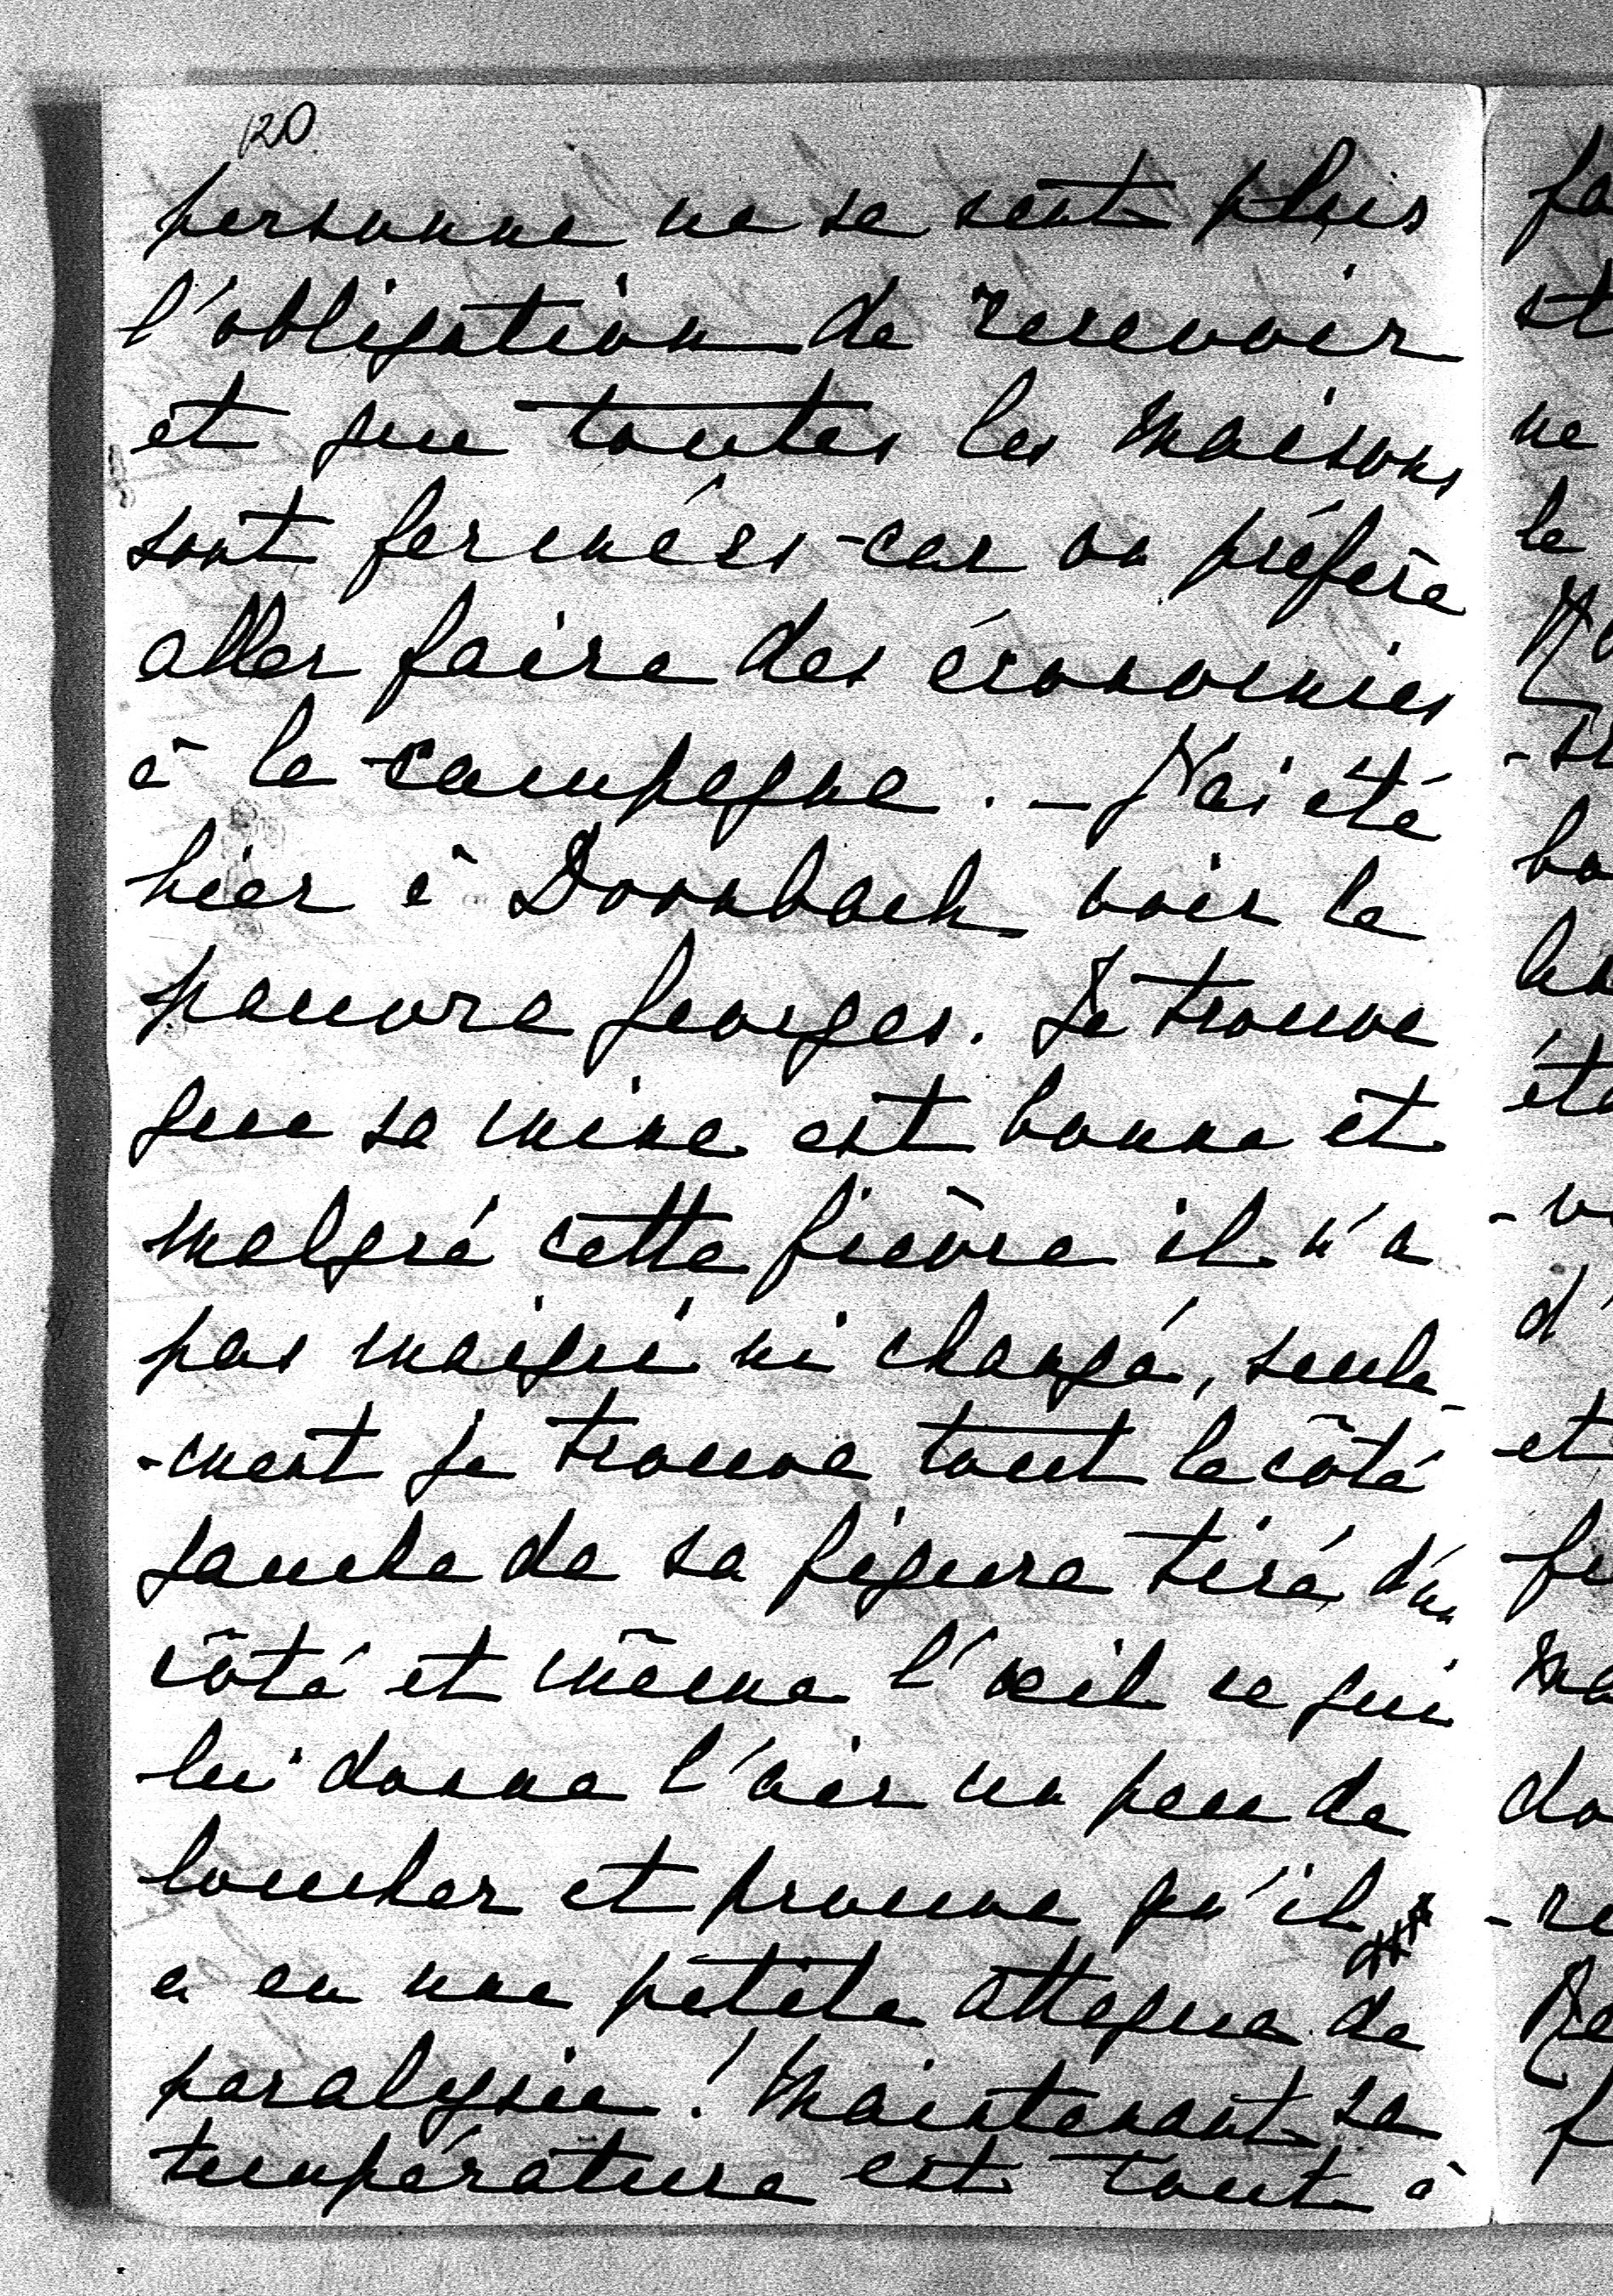 120
personne ne se sent plus
l'obligation de recevoir
et que toutes les maisons
sont fermées - car on préfère
aller faire des économies
à la campagne. - J'ai été
hier à Dornbach voir le
pauvre Georges. Je trouve
que sa mine est bonne et
malgré cette fièvre il n'a
pas maigri ni changé, seule-
-ment je trouve tout le côté
gauche de sa figure tiré d'un
côté et même l'œil ce qui
lui donne l'air un peu de
loucher et prouve qu'il
a eu une petite attaque de
paralysie! Maintenant sa
température est tout à
fa
st
ne
le
-
ba
éta
- v
d'
-et
fi
ma
do
- re